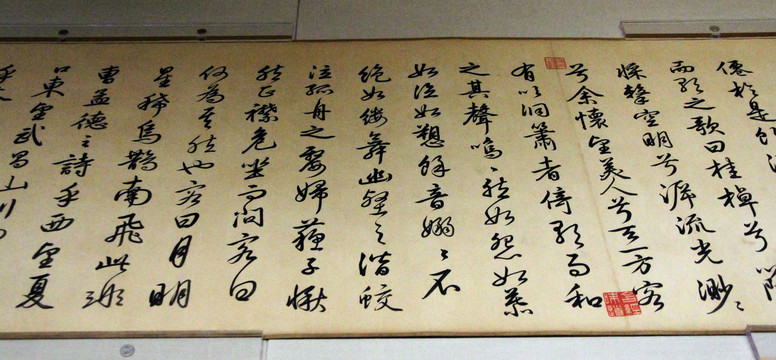 僊於是飲
而歌之歌曰桂棹兮蘭
槳擊空明兮泝流光渺〻
兮余懷望美人兮天一方客
有吹洞簫者倚歌而和
之其聲嗚〻然如怨如慕
如泣如愬餘音嫋〻不
絕如縷舞幽壑之潛蛟
泣孤舟之嫠婦蘇子愀
然正襟危坐而問客曰
何為其然也客曰月明
星稀烏鵲南飛此非
曹孟德之詩乎西望夏
口東望武昌山川
乎